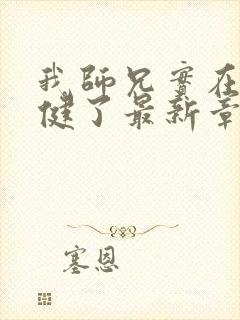 我師兄實在
健了最新章
塞恩